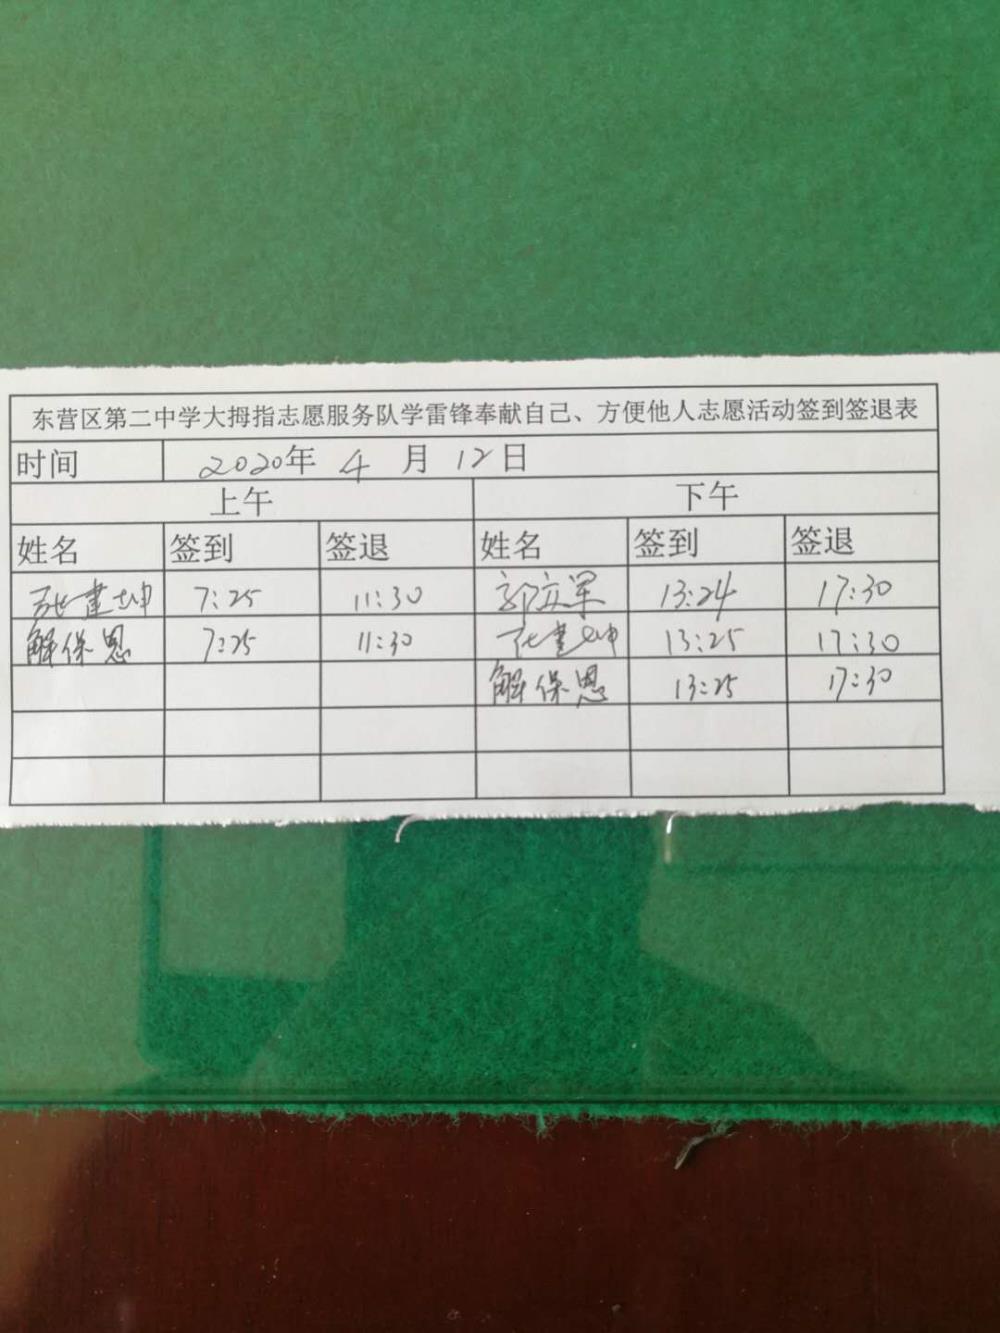 东营区第二中学大拇指志愿服务队学雷锋奉献自己、方便他人志愿活动签到签退表
时间 2020年 4 月 12日
上午 下午
姓名 签到 签退 姓名 签到 签退
张建坤 7:25 11:30 郭立军 13:24 17:30
解保恩 7:25 11:30 张建坤 13:25 17:30
解保恩 13:25 17:30